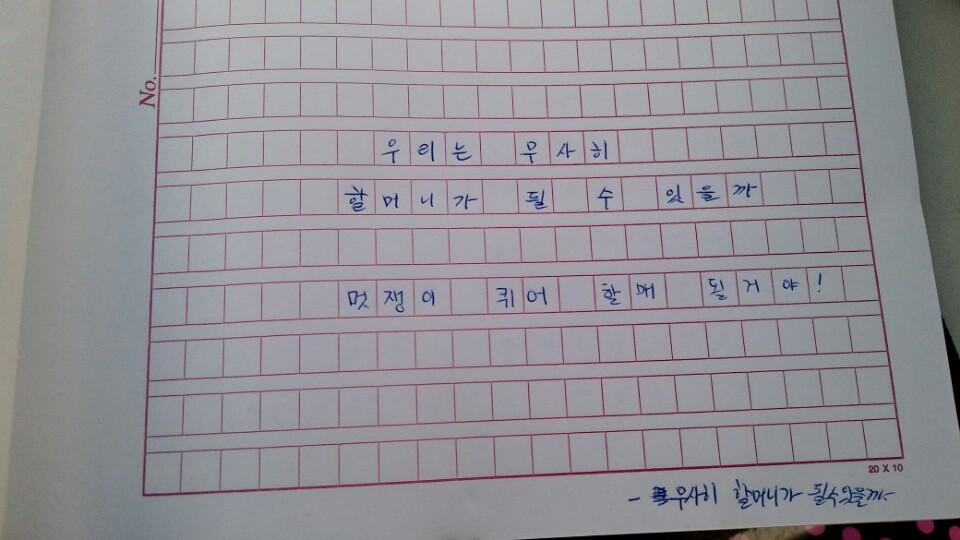 No.
우리는 무사히
할머니가 될 수 있을까
멋쟁이 퀴어 할매 될거야!
20 X 10
- 무사히 할머니가 될수있을까